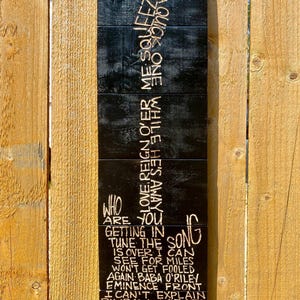 SQUEEZ
QUICK
LOVE REIGN O'ER ME
WHILE HE'S AWAY
ONE
WHO
ARE YOU
GETTING IN
TUNE THE SONG
IS OVER I CAN
SEE FOR MILES
WON'T GET FOOLED
AGAIN BABA O'RILEY
EMINENCE FRONT
I CAN'T EXPLAIN